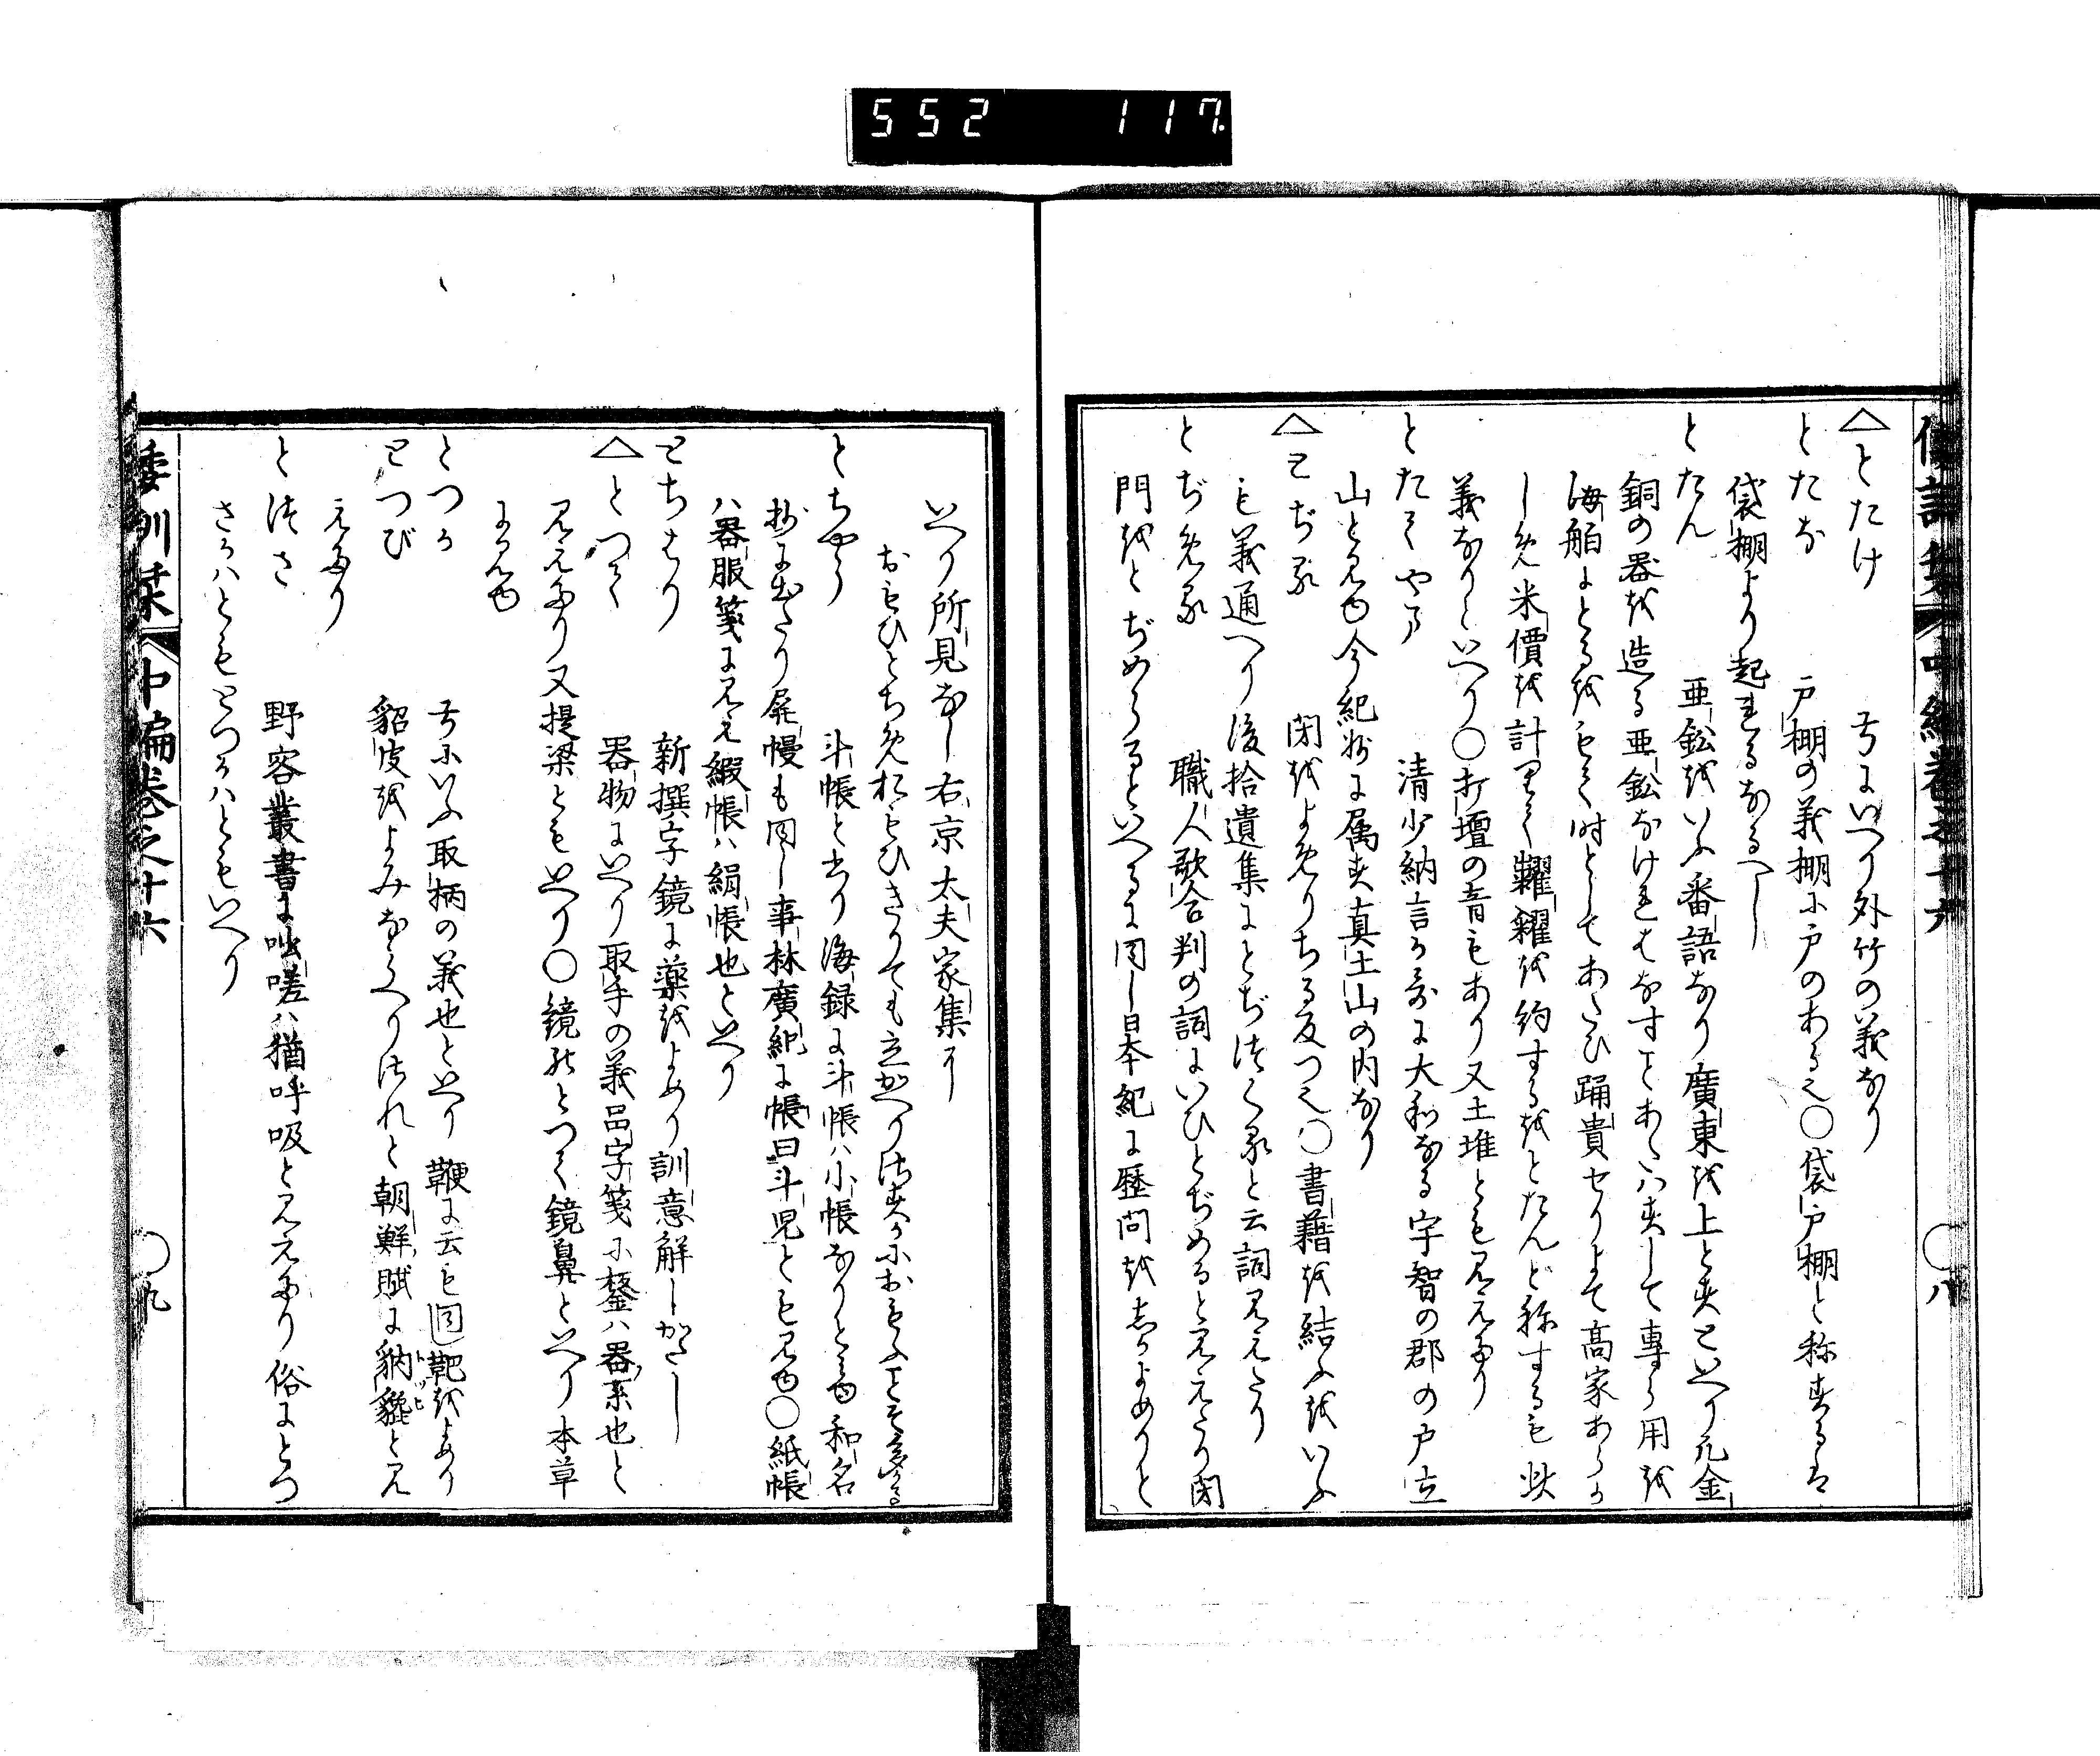 552 117
△とたけ 字にいへり外竹の義なり
とたな 戸棚の義棚に戸のある也○袋戸棚と称するは
袋棚より起れるなるへし
とたん 亜鉛をいふ番語なり廣東を上とすといへり凡金
銅の器を造る亜鉛なけれはなすことあたはすして専ら用を
海舶にとるをもて時としてあたひ踊貴せりよて高家あらか
しめ米價を計りて糶糴を約するをとたんと称するも此
義なりといへり○打壇の音もあり又土堆とも見えたり
とたてやま 清少納言か哥に大和なる宇智の郡の戸立
山と見ゆ今紀州に属す真土山の内なり
△とぢる 閉をよめりちる反つ也○書籍を結ふをいふ
も義通へり後拾遺集にとぢつくると云詞見えたり
とぢめる 職人歌合判の詞にいひとぢめると見えたり閉
門をとぢめらるといへるに同し日本紀に歴問をしかよめりと
倭訓栞 中編巻之十六 ○八
いへり所見なし右京太夫家集に
おもひとちめおもひきりても立かへりさすかにおもふことそ多かる
とちやう 斗帳と書り海録に斗帳ハ小帳なりと見ゆ和名
抄に出たり屏幔も同し事林廣紀に帳曰斗児とも見ゆ○紙帳
ハ器服箋に見え緞帳ハ絹帳也といへり
とちはり 新撰字鏡に薬をよめり訓意解しかたし
△とつて 器物にいへり取手の義品字箋に鋬ハ器系也と
見えたり又提梁ともいへり○鏡のとつて鏡鼻といへり本草
に見ゆ
とつか 字にいふ取柄の義也といへり鞭に云も同し靶をよめり
とつび 貂皮をよみならへりされと朝鮮賦に豽貔トツヒと見
えたり
とつさ 野客叢書に咄嗟ハ猶呼吸と見えたり俗にとつ
さかハともとつかハともいへり
倭訓栞 中編巻之十六 ○九